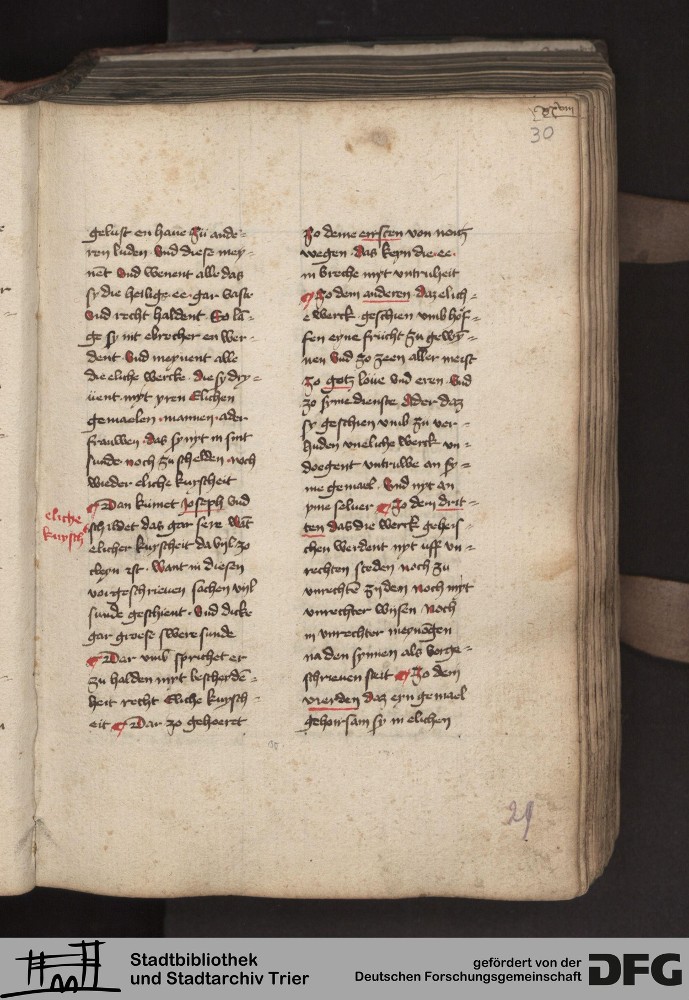 xxviii
30
gelust en haue zu ande-
ren luden. Vnd diese mey-
net vnd wenent alle das
sy die heilige ee gar vaste
vnd recht haldent. So lā-
ge sy nit ebrecher en wer-
dent. Vnd meynent alle
die eliche wercke. die sy dry-
uent myt yren Elichen
gemaelen. mannen. ader
frauwen. das sy nyt in sint
sunde. noch zu schelden. noch
wieder eliche kuyrscheit
Dan kumet Joseph vnd
schildet das gar sere want
elicher kuyscheit da vyl zo
cleyn ist. Want in diesen
vorgeschrieuen sachen vyl
sunde geschient. Vnd dicke
gar groese swere sunde
Dar vmb sprichet er
zu halden nyrt bescheydē-
heit recht Eliche kuysch-
eit Dar zo gehoeret
eliche
kuysch
Zo deme eirsten von
wegen. das keyn die. ee.
in breche myt vntruheit
Zo dem anderen. daz elich-
e werck geschien vmb hof-
fen eyne frucht zu gewȳ-
nen vnd zo zeen aller meist
zo gotz loue vnd eren. Vnd
zo syme dienste. Ader daz
sy geschien vmb zu ver-
huden vneliche werck vn-
doegent vntruwe an sy-
me gemael. Vnd nyt an
yme seluer Zo dem drit-
ten das die werck gehei-
chen werdent nyt uff vn-
rechten steden noch zu
vnrechtē zyden noch myt
vnrechter wysen noch
in vnrechter meynōgen
na den synnen als vorge-
schrieuen steit Zo dem
vierden daz eyn gemael
gehoirsam sy in elichen
29
Stadtbibliothek
und Stadtarchiv Trier
gefördert von der
Deutschen Forschungsgemeinschaft
DFG